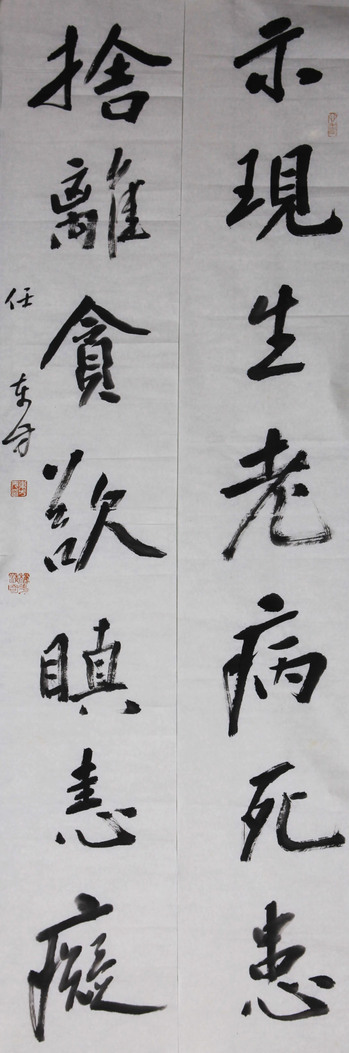 示現生老病死患
捨離貪欲瞋恚癡
任东方